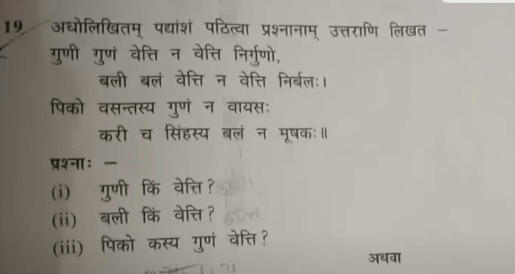 19 अधोलिखितम् पद्यांशं पठित्वा प्रश्नानाम् उत्तराणि लिखत –
गुणी गुणं वेत्ति न वेत्ति निर्गुणो,
बली बलं वेत्ति न वेत्ति निर्बलः।
पिको वसन्तस्य गुणं न वायसः
करी च सिंहस्य बलं न मूषकः॥
प्रश्नाः –
(i) गुणी किं वेत्ति ?
(ii) बली किं वेत्ति ?
(iii) पिको कस्य गुणं वेत्ति ?
अथवा